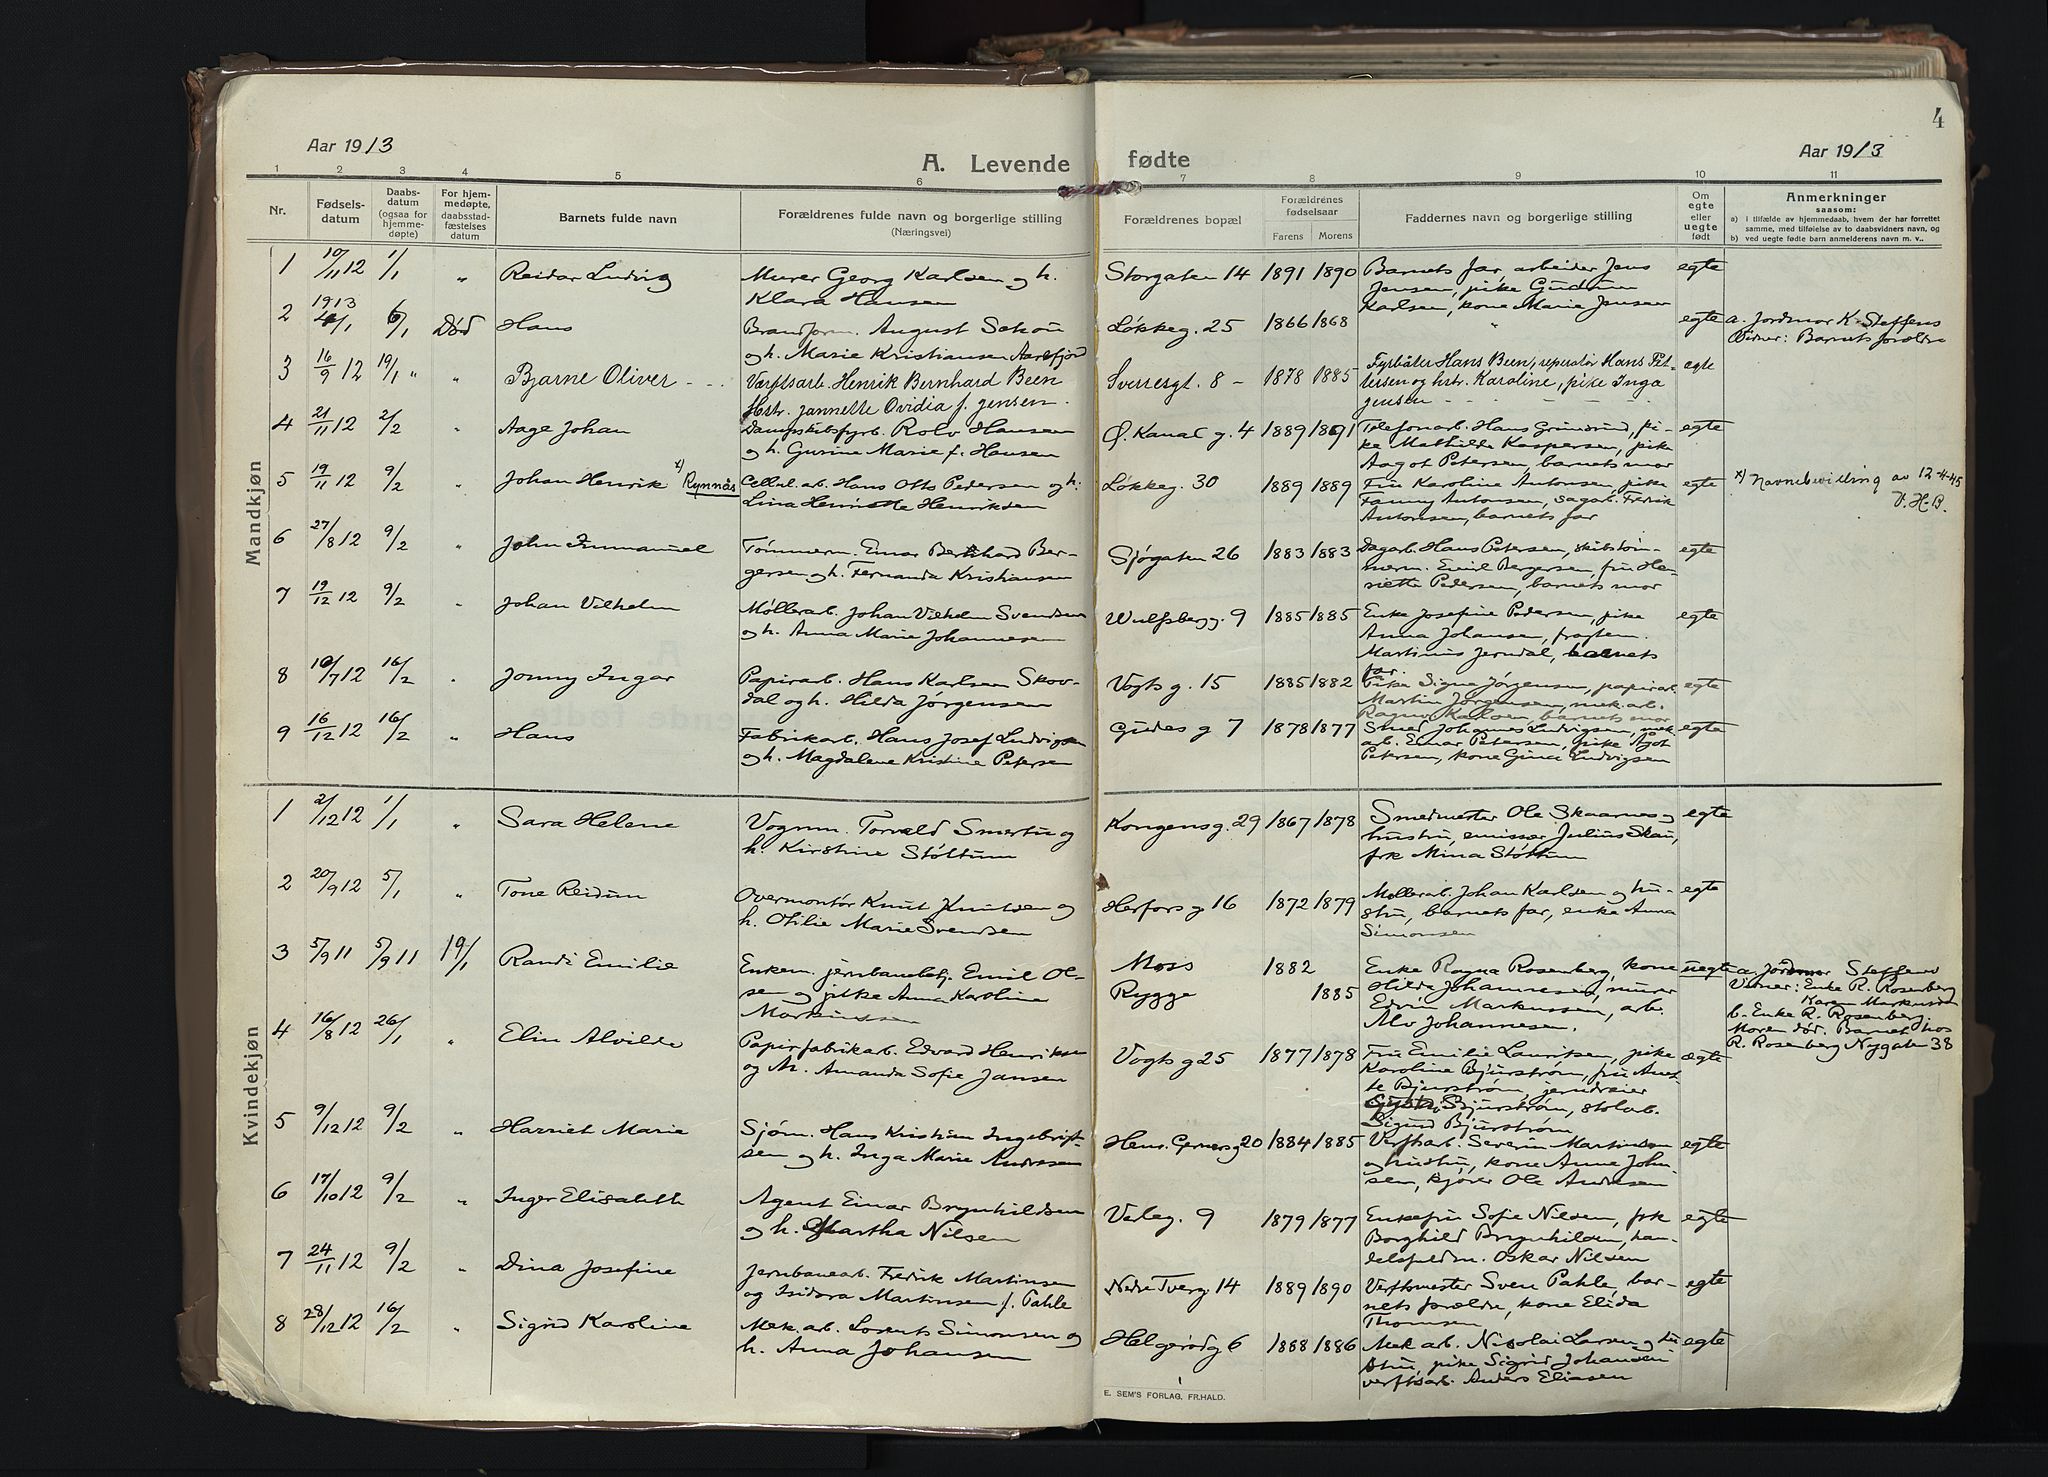 4
Aar 1913
A. Levende fødte
Aar 1913
1 2 3 4 5 6 7 8 9 10 11
Nr.
Fødselsdatum
Daabsdatum (ogsaa for hjemmedøpte)
For hjemmedøpte, daabsstadfæstelses datum
Barnets fulde navn
Forældrenes fulde navn og borgerlige stilling
(Næringsvei)
Forældrenes bopæl
Forældrenes fødselsaar
Farens Morens
Faddernes navn og borgerlige stilling
Om egte eller uegte født
Anmerkninger
saasom:
a) i tilfælde av hjemmedaab, hvem der har forrettet
samme, med tilføielse av to daabsvidners navn, og
b) ved uegte fødte barn anmelderens navn m. v..
Mandkjøn
1 10/11 12 1/1 " Reidar Ludvig Murer Georg Karlsen og h. Storgaten 14 1891 1890 Barnets far, arbeider Jens egte
Klara Hansen Jensen, pike Gudrun
Karlsen, kone Marie Jensen
1913
2 4/1 6/1 Død Hans Brandform. August Schou Løkkeg. 25 1866 1868 " egte a. Jordmor K. Steffens
og h. Marie Kristiansen Aarefjord Vidner: Barnets foreldre
3 16/9 12 19/1 " " Bjarne Oliver - - - Værftsarb. Henrik Bernhard Been Sverresgt. 8 - 1878 1885 Fyrbøter Hans Been, reperatør Hans Pet- egte
Hstr. Jannette Ovidia f. Jensen. tersen og hstr. Karoline, pike Inga
Jensen - - - - -
4 21/11 12 2/2 " Aage Johan Dampskibsfyrb. Rolv Hansen Ø. Kanal g. 4 1889 1891 Telefonarb. Hans Grimsrud, pi- egte
og h. Gurine Marie f. Hansen ke Mathilde Kaspersen, pike
Aagot Petersen, barnets mor
5 19/11 12 9/2 " Johan Henrik x) Rynnås Cellul. arb. Hans Otto Pedersen og h. Løkkeg. 30 1889 1889 Fru Karoline Antonsen, pike egte x) Navnebevilling av 12-4-45
Lina Henriette Henriksen Fanny Antonsen, sagarb. Fredrik V. H. B.
Antonsen, barnets far
6 27/8 12 9/2 " John Immanuel Tømmerm. Einar Bernhard Ber- Sjøgaten 26 1883 1883 Dagarb. Hans Petersen, skibstøm- egte
gersen og h. Fernanda Kristiansen merm. Emil Bergersen, fru Hen-
riette Pedersen, barnets mor
7 19/12 12 9/2 " Johan Vilhelm Møllerarb. Johan Vilhelm Svendsen Wulfsbergg. 9 1885 1885 Enke Josefine Pedersen, pike egte
og h. Anna Marie Johannesen Anna Johansen, fragtem.
Martinus Jerndal, barnets
far.
8 10/7 12 16/2 " Jonny Ingar Papirarb. Hans Karlsen Skov- Vogts g. 15 1885 1882 Pike Signe Jørgensen, papirarb. egte
dal og h. Hilda Jørgensen Martin Jørgensen, mek. arb.
Ragnv. Karlsen, barnets mor
9 16/12 12 16/2 " Hans Fabrikarb. Hans Josef Ludvigsen Gudes g 7 1878 1877 Smed Johannes Ludvigsen, mek. egte
og h. Magdalene Kristine Petersen arb. Einar Petersen, pike Agot
Petersen, kone Gina Ludvigsen
Kvindekjøn
1 2/12 12 1/1 " Sara Helene Vognm. Torvald Smertu og Kongens g. 29 1867 1878 Smedmester Ole Skaarnes og egte
h. Kirstine Støttum hustru, emissær Julius Skau,
frk Mina Støttum
2 20/9 12 5/1 " Tone Reidun Overmontør Knut Knutsen og Herfors g 16 1872 1879 Møllerarb. Johan Karlsen og hu- egte
h. Otilie Marie Svendsen stru, barnets far, enke Anna
Simonsen
3 5/9 11 5/9 11 19/1 Randi Emilie Enkem. jernbanebetj. Emil Ol- Moss 1882 Enke Ragna Rosenberg, kone uegte a. Jordmor Steffens
sen og pike Anna Karoline Rygge 1885 Hilda Johannesen, murer Vidner: Enke R. Rosenberg
Markussen Edvin Markussen, arb. Karen Markussen
Alv Johannesen. b. Enke R. Rosenberg.
Moren død. Barnet hos
R. Rosenberg Nygaten 38
4 16/8 12 26/1 " Elin Alvilde Papirfabrikarb. Edvard Henriksen Vogts g 25 1877 1878 Fru Emilie Lauritsen, pike egte
og h. Amanda Sofie Jansen Karoline Bjurstrøm, fru Anet-
te Bjurstrøm jerndreier
Bjurstrøm, stolarb.
Sigurd Bjurstrøm
5 9/12 12 9/2 " Harriet Marie Sjøm. Hans Kristian Ingebrigt- Henr. Gerners g 20 1884 1885 Verftsarb. Severin Martinsen egte
sen og h. Inga Marie Andresen og hustru, kone Anna John-
sen, kjører Ole Andresen
6 17/10 12 9/2 " Inger Elisabeth Agent Einar Brynhildsen Varleg. 9 1879 1877 Enkefru Sofie Nilsen, frk egte
og h. Martha Nilsen Borghild Brynhildsen, han-
delsfuldm. Oskar Nilsen
7 24/11 12 9/2 " Dina Josefine Jernbanearb. Fredrik Martinsen Nedre Tverg. 14 1889 1890 Verftmester Sven Pahle, bar- egte
og Isidora Martinsen f. Pahle nets forældre, kone Elida
Thomsen
8 28/12 12 16/2 " Sigrid Karoline Mek. arb. Lorents Simonsen og Helgerødg 6 1888 1886 Mek arb. Nicolai Larsen og hu- egte
h. Anna Johansen stru, pike Sigrid Johansen
verftsarb. Anders Eliasen
E. SEM'S FORLAG, FR.HALD.